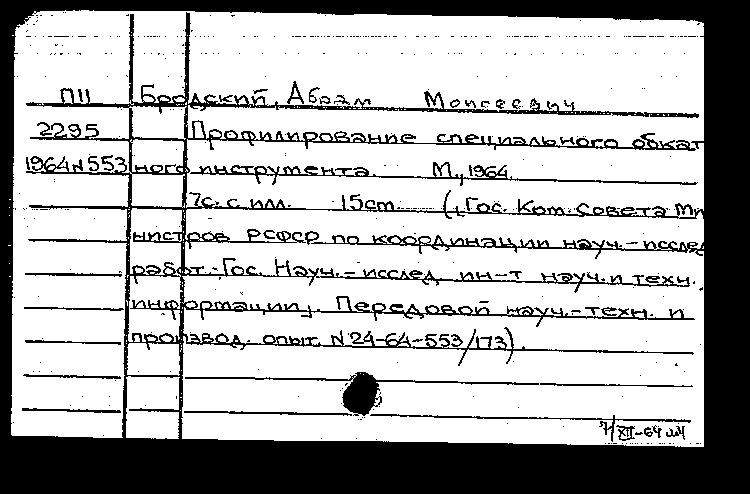 П11 Бродский, Абрам Моисеевич
2295 Профилирование специального обкат
1964 N 553 ного инструмента. М., 1964.
7с. с илл. 15cm. („Гос. Ком. Совета Ми
нистров РСФСР по координации науч.-исслед
работ. Гос. Науч.-исслед. ин-т науч. и техн.
информации„. Передовой науч.-техн. и
производ. опыт. N 24-64-553/173).
XII-64